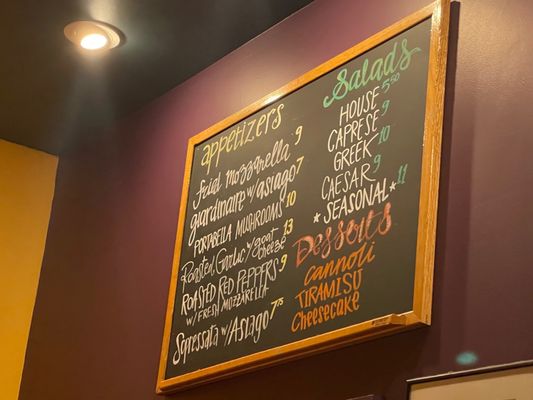 appetizers
fried mozzarella 9
giardinaire w/asiago 7
PORTABELLA MUSHROOMS 10
Roasted Garlic w/goat cheese 13
ROASTED RED PEPPERS 9
w/ FRESH MOZZARELLA
Sopressata w/Asiago 7.75
Salads
HOUSE 5.50
CAPRESE 9
GREEK 10
CAESAR 9
*SEASONAL* 11
Desserts
cannoli
TIRAMISU
Cheesecake